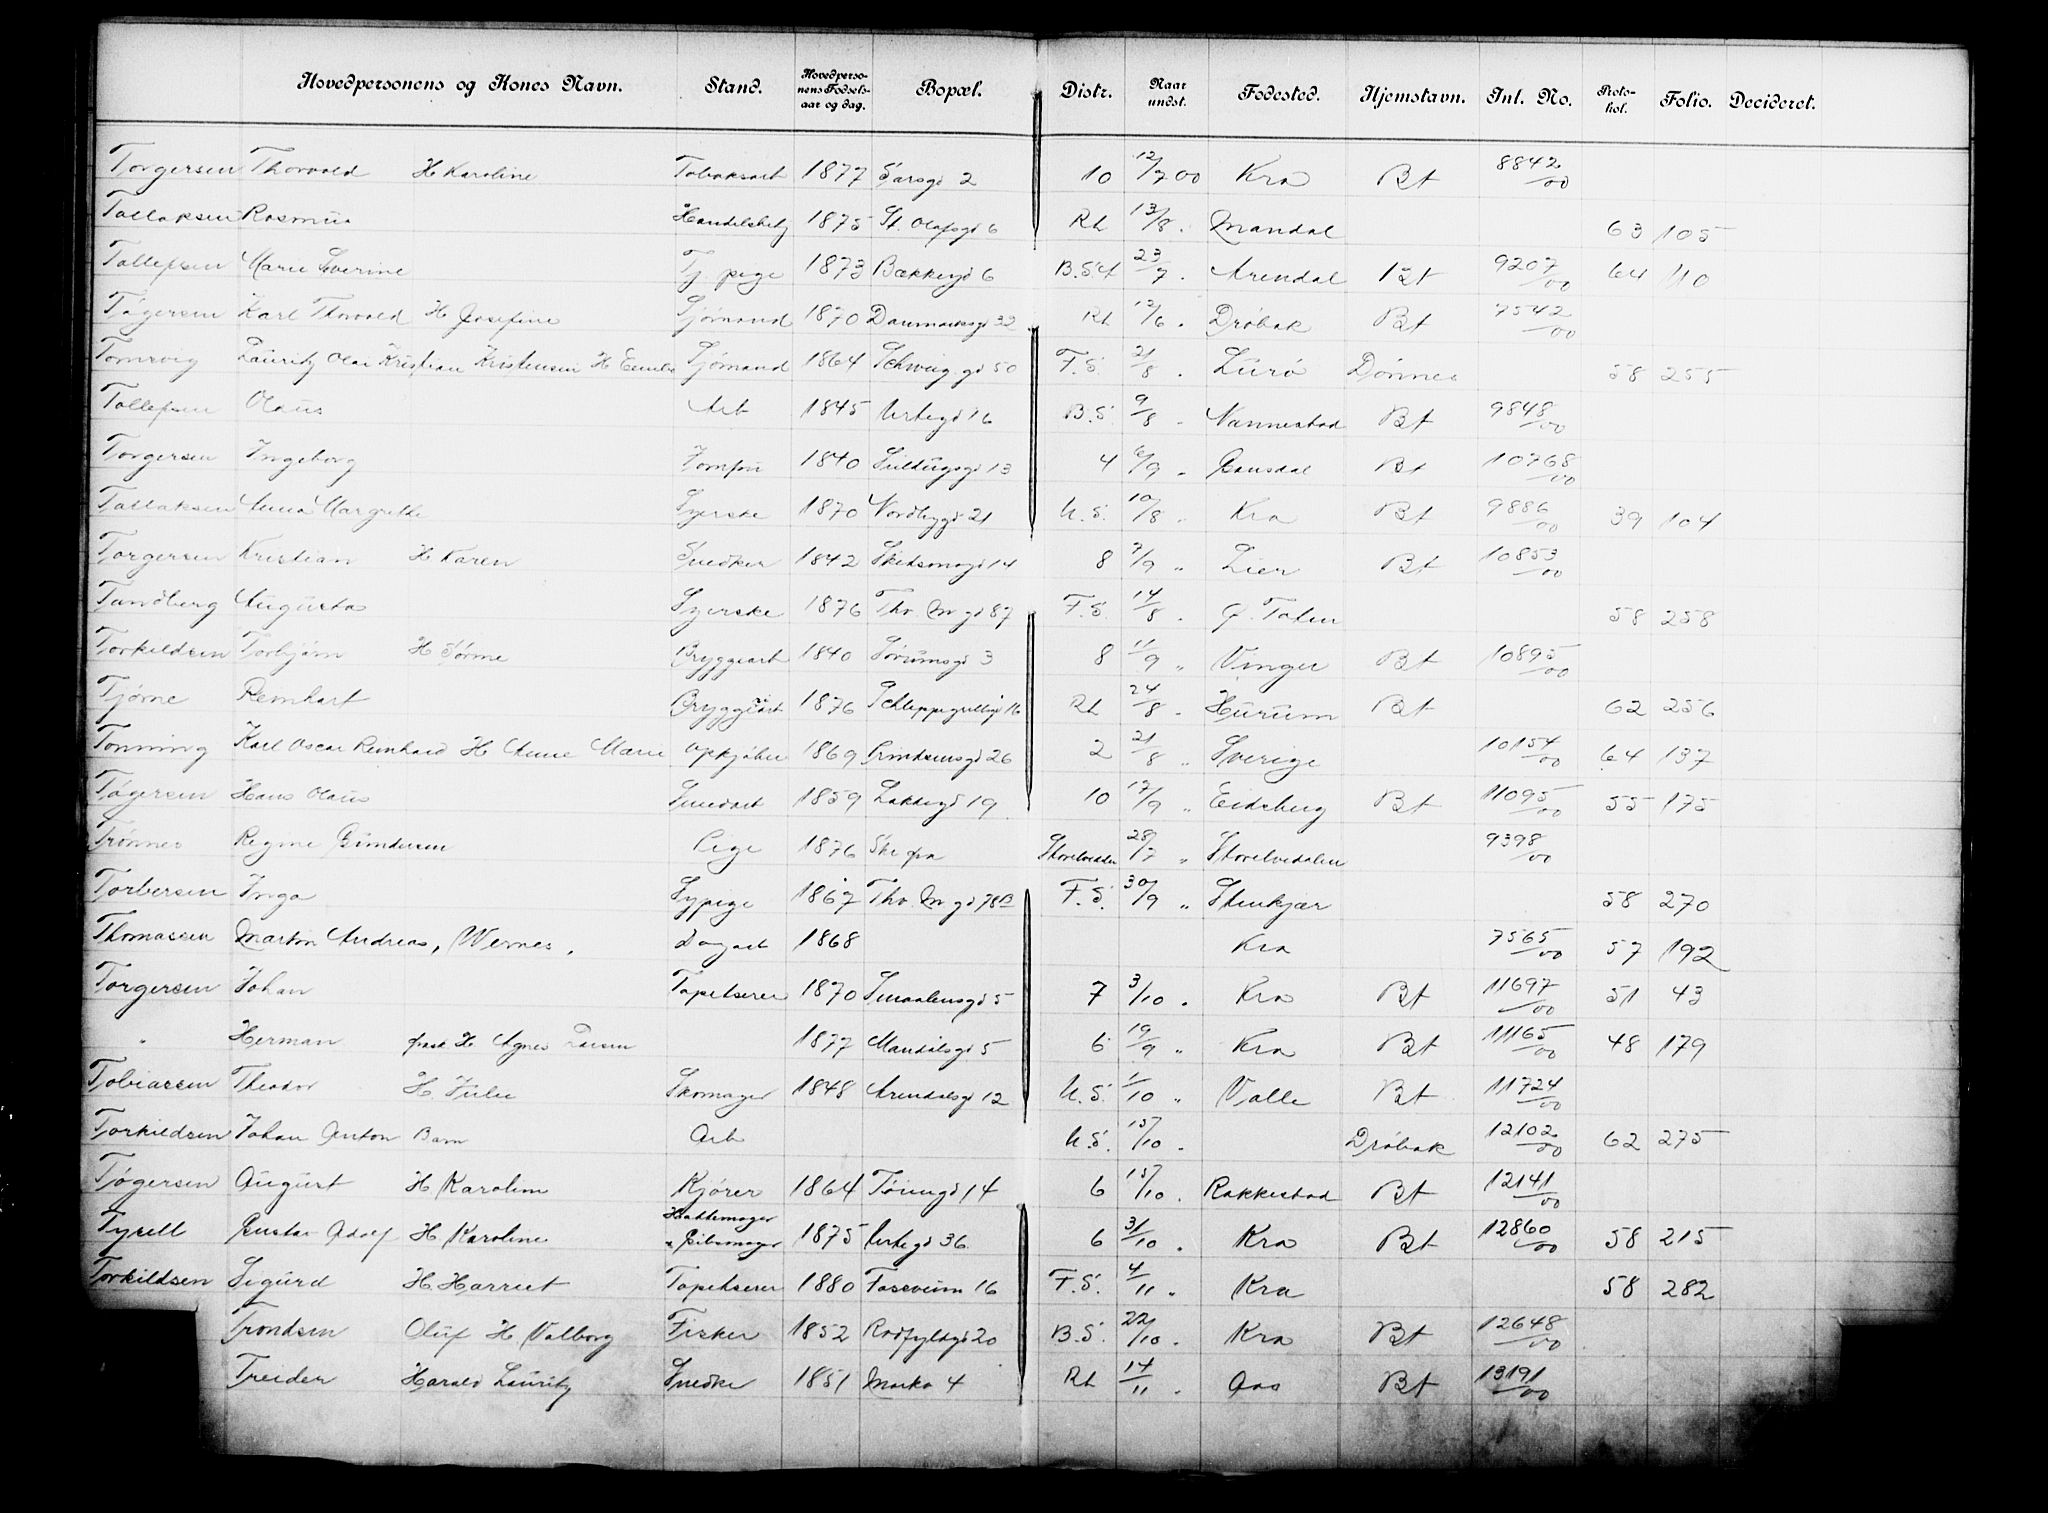 Hovedpersonens og Kones Navn. Stand. Hovedperso- nens Fødsels- aar og dag. Bopæl. Distr. Naar undst. Fødested. Hjemstavn. Int. No. Proto- kol. Folio. Decideret.
Torgersen Thorvald H Karoline Tobaksarb 1877 Sarsgd 2 10 12/7 00 Kra Bt 8842/00
Tallaksen Rasmus Handelsbetj 1875 St. Olafsgd 6 Rh 13/8 . Mandal 63 105
Tallefsen Marie Severine Tj. pige 1873 Bakkegd 6 B.S.t 23/7 . Arendal Bt 9207/00 64 110
Tøgersen Karl Thorvald H Josefine Sjømand 1870 Danmarksgd 32 Rh 12/6 . Drøbak Bt 7542/00
Tomrvig Lauritz Olai Kristian Kristensen H Emilie Sjømand 1864 Schweig.gd 50 F.S. 21/8 . Lurø Dønnes 58 255
Tollefsen Olaus Arb 1845 Urtegd 16 B.S. 9/8 . Nannestad Bt 9848/00
Torgersen Ingeborg Jomfru 1840 4 6/9 " Gausdal Bt 10768/00
Tallaksen Anna Margrethe Syerske 1870 Nordbygd 21 U.S. 10/8 " Kra Bt 9886/00 39 104
Torgersen Kristian H Karen Snedker 1842 Skedsmogd 14 8 7/9 " Lier Bt 10853/00
Tandberg Augusta Syerske 1876 Thv. M gd 87 F.S. 14/8 . Ø. Toten 58 258
Torkildsen Torbjørn H Jørine Bryggearb 1840 Sørumsgd 3 8 11/9 " Vinger Bt 10895/00
Tjørne Reinhart Bryggearb 1876 Schleppegrellsgd 16 Rh 24/8 . Hurum Bt 62 256
Tonning Karl Oscar Reinhard H Anne Marie Opkjøber 1869 26 2 21/8 " Sverige 10154/00 64 137
Tøgersen Hans Olaus Smedarb 1859 Lakkegd 19 10 17/9 " Eidsberg Bt 11095/00 55 175
Trønnes Regine Gundersen Pige 1876 Ske fra Storelvedalen 28/7 " Storelvedalen 9398/00
Torbersen Inga Sypige 1867 Thv. M gd 78B F.S. 30/9 " Stenkjær 58 270
Thomassen Martin Andreas, Wernes, Dagarb 1868 Kra 7565/00 57 192
Torgersen Johan Tapetserer 1870 Smaalensgd 5 7 3/10 . Kra Bt 11697/00 51 43
" Herman frask H Agnes Larsen 1877 Mandalsgd 5 6 19/9 " Kra Bt 11165/00 48 179
Tobiassen Theodor H Julie Skomager 1848 Arendalsgd 12 U.S. 1/10 " Valle Bt 11724/00
Torkildsen Johan Anton Barn Arb U.S. 15/10 . Drøbak 12102/00 62 275
Tøgersen August H Karoline Kjører 1864 Tøiengd 14 6 15/10 . Rakkestad Bt 12141/00
Tyrell Gustav Adolf H Karoline Hattemager & Gibsmager 1875 Urtegd 36 6 31/10 . Kra Bt 12860/00 58 215
Torkildsen Sigurd H Harriet Tapetserer 1880 Fossveien 16 F.S. 4/11 " Kra 58 282
Trondsen Oluf H Valborg Fisker 1852 Rodfyldgd 20 B.S. 22/10 . Kra Bt 12648/00
Treider Harald Lauritz Snedker 1851 Marka 4 Rh 14/11 . Aas Bt 13191/00